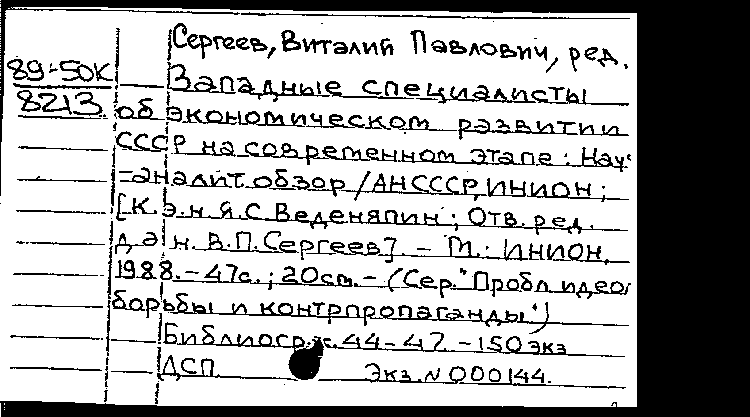 Сергеев, Виталий Павлович, ред.
89-50К
8213
Западные специалисты
об экономическом развитии
СССР на современном этапе: Науч
=аналит. обзор / АН СССР, ИНИОН;
[К.э.н. Я.С. Веденяпин; Отв. ред.
д. э н. В.П. Сергеев]. - М.: ИНИОН,
1988. - 47с.; 20см. - (Сер. "Пробл идео
борьбы и контрпропаганды")
Библиогр.: с. 44-47. - 150 экз
ДСП Экз. N 000144.